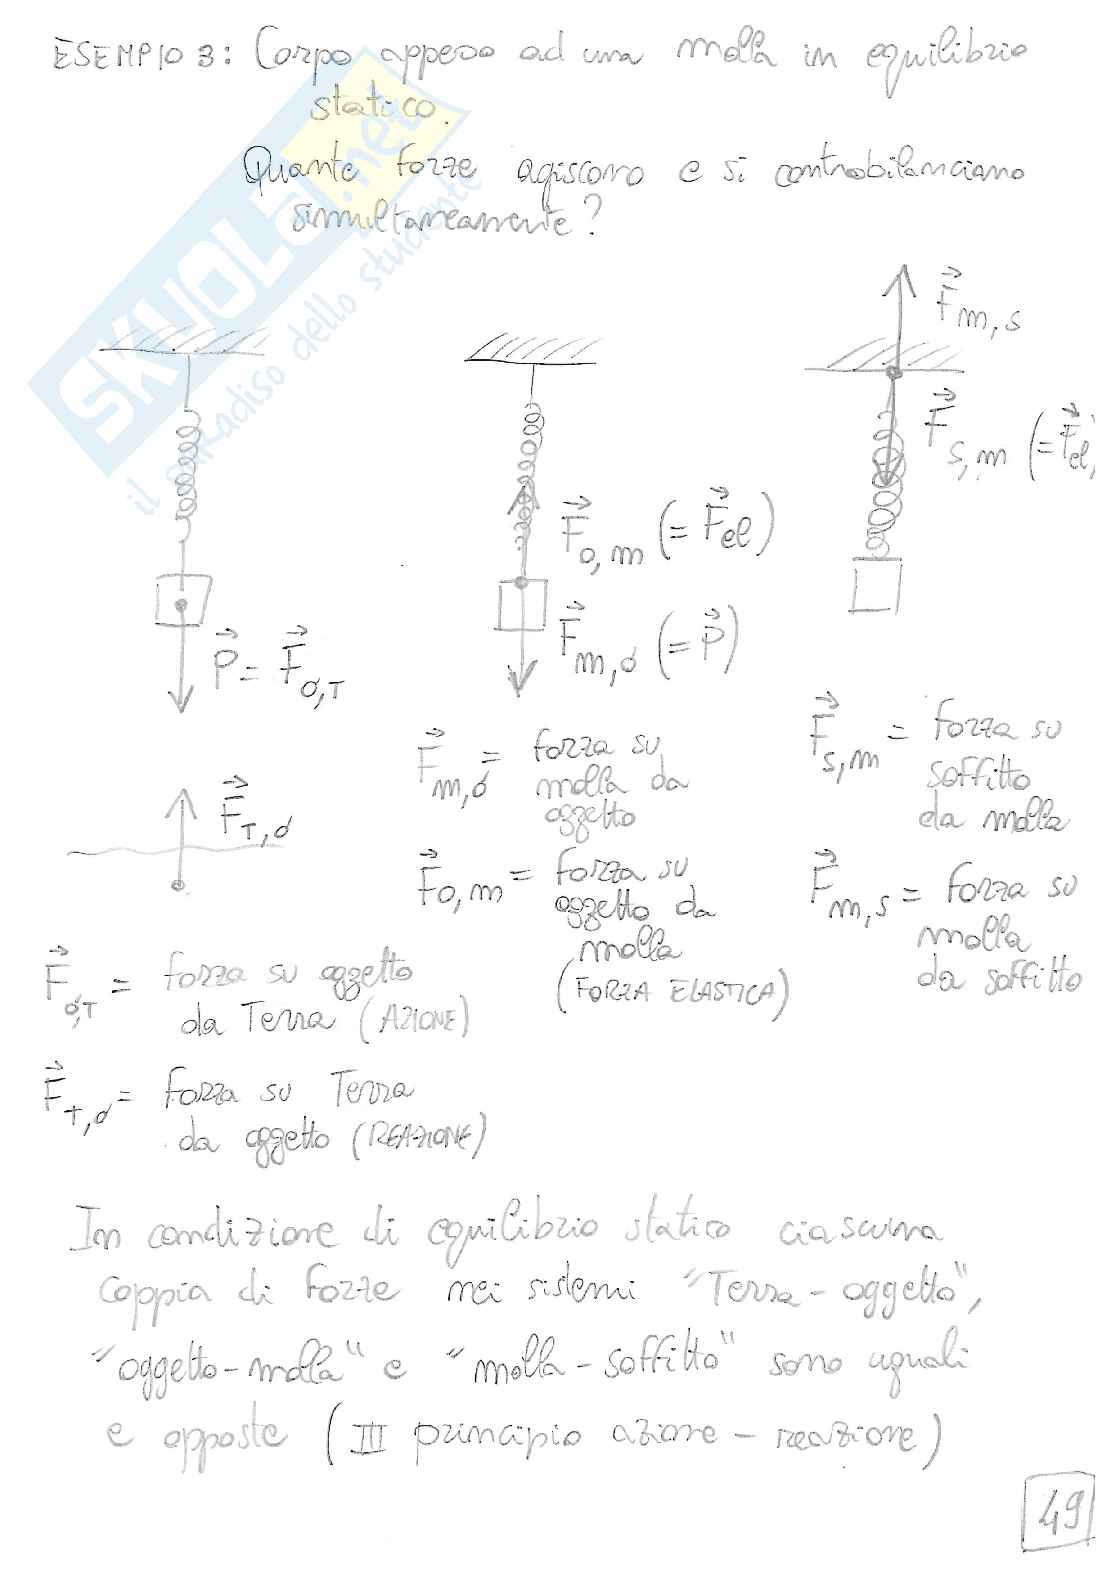 ESEMPIO 3: Corpo appeso ad una molla in equilibrio
statico.
Quante forze agiscono e si controbilanciano
simultaneamente?
SKUOLA.net
il paradiso dello studente
F⃗ m,s
F⃗ s,m (= F⃗ el)
F⃗ o,m (= F⃗ el)
F⃗ m,o (= P⃗)
P⃗ = F⃗ o,T
F⃗ T,o
F⃗ m,o = forza su
molla da
oggetto
F⃗ o,m = forza su
oggetto da
molla
(FORZA ELASTICA)
F⃗ s,m = forza su
soffitto
da molla
F⃗ m,s = forza su
molla
da soffitto
F⃗ o,T = forza su oggetto
da Terra (AZIONE)
F⃗ T,o = forza su Terra
da oggetto (REAZIONE)
In condizione di equilibrio statico ciascuna
coppia di forze nei sistemi "Terra-oggetto",
"oggetto-molla" e "molla-soffitto" sono uguali
e opposte (III principio azione-reazione)
49